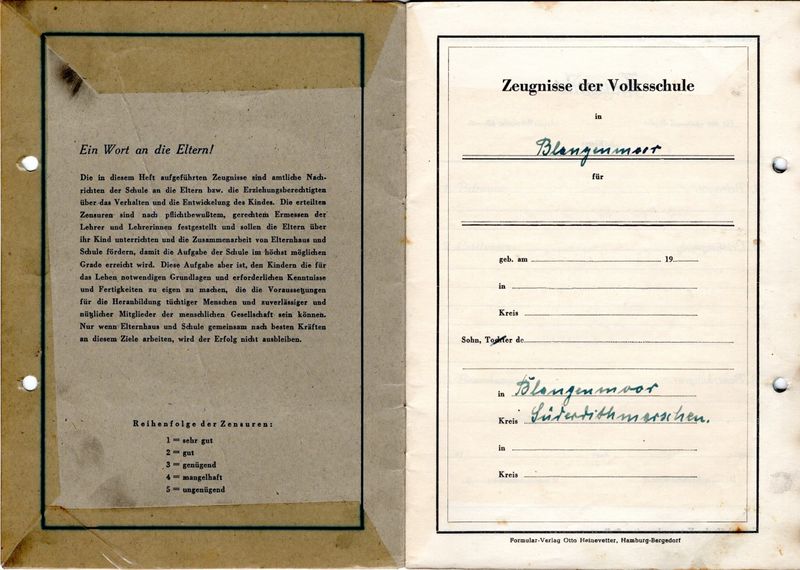 Ein Wort an die Eltern!
Die in diesem Heft aufgeführten Zeugnisse sind amtliche Nach-
richten der Schule an die Eltern bzw. die Erziehungsberechtigten
über das Verhalten und die Entwickelung des Kindes. Die erteilten
Zensuren sind nach pflichtbewußtem, gerechtem Ermessen der
Lehrer und Lehrerinnen festgestellt und sollen die Eltern über
ihr Kind unterrichten und die Zusammenarbeit von Elternhaus und
Schule fördern, damit die Aufgabe der Schule im höchst möglichen
Grade erreicht wird. Diese Aufgabe aber ist, den Kindern die für
das Leben notwendigen Grundlagen und erforderlichen Kenntnisse
und Fertigkeiten zu eigen zu machen, die die Voraussetzungen
für die Heranbildung tüchtiger Menschen und zuverlässiger und
nützlicher Mitglieder der menschlichen Gesellschaft sein können.
Nur wenn Elternhaus und Schule gemeinsam nach besten Kräften
an diesem Ziele arbeiten, wird der Erfolg nicht ausbleiben.
Reihenfolge der Zensuren:
1 = sehr gut
2 = gut
3 = genügend
4 = mangelhaft
5 = ungenügend
Zeugnisse der Volksschule
in
Blangenmoor
für
geb. am 19
in
Kreis
Sohn, Tochter de
in Blangenmoor
Kreis Süderdithmarschen.
in
Kreis
Formular-Verlag Otto Heinevetter, Hamburg-Bergedorf